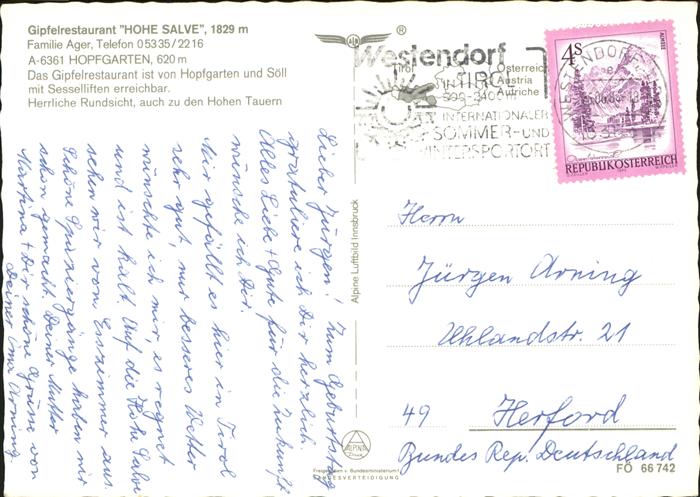 Gipfelrestaurant "HOHE SALVE", 1829 m
Familie Ager, Telefon 05335/2216
A-6361 HOPFGARTEN, 620 m
Das Gipfelrestaurant ist von Hopfgarten und Söll
mit Sesselliften erreichbar.
Herrliche Rundsicht, auch zu den Hohen Tauern
Lieber Jürgen! Zum Geburtstag
gratuliere ich Dir herzlich.
Alles Liebe + Gute für die Zukunft
wünsche ich Dir.
Mir gefällt es hier in Tirol
sehr gut nur besseres Wetter
wünschte ich mir, es regnet
und ist kalt. Auf die Hohe Salve
sehen wir vom Esszimmer aus
Schöne Spaziergänge haben wir
schon gemacht. Deiner Mutter
Martina + Dir schöne Grüsse von
Deiner Oma Arning
Alpine Luftbild Innsbruck
ALPINE
Freigegeben v. Bundesministerium f.
LANDESVERTEIDIGUNG
Westendorf
Tirol
Österreich
IN TIROL
Austria
Autriche
INTERNATIONALER
SOMMER- UND
WINTERSPORTORT
WESTENDORF
4S
ALMSEE
REPUBLIK ÖSTERREICH
Herrn
Jürgen Arning
Uhlandstr. 21
49 Herford
Bundes Rep. Deutschland
FÖ 66 742